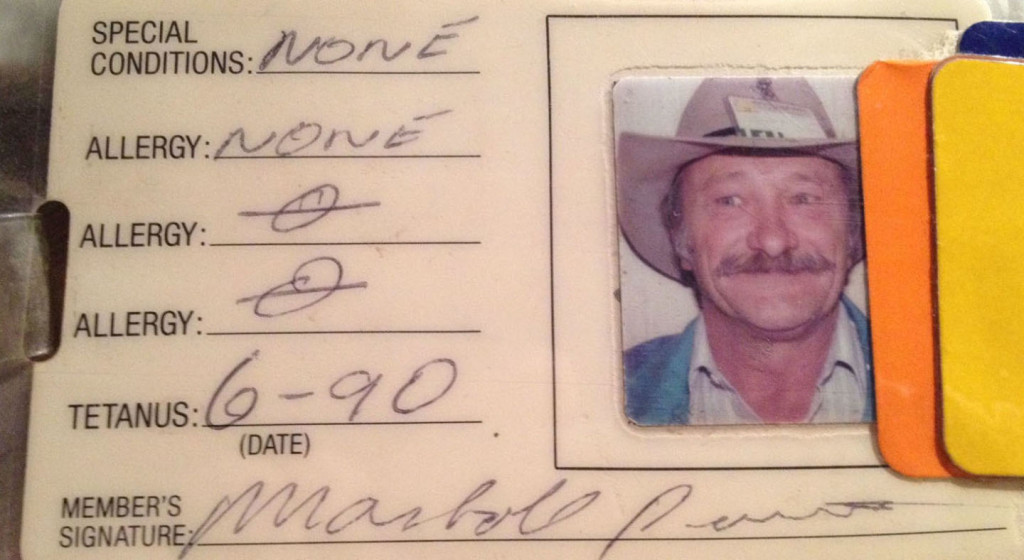 SPECIAL
CONDITIONS: NONE
ALLERGY: NONE
ALLERGY: 0
ALLERGY: 0
TETANUS: 6-90
(DATE)
MEMBER'S
SIGNATURE: